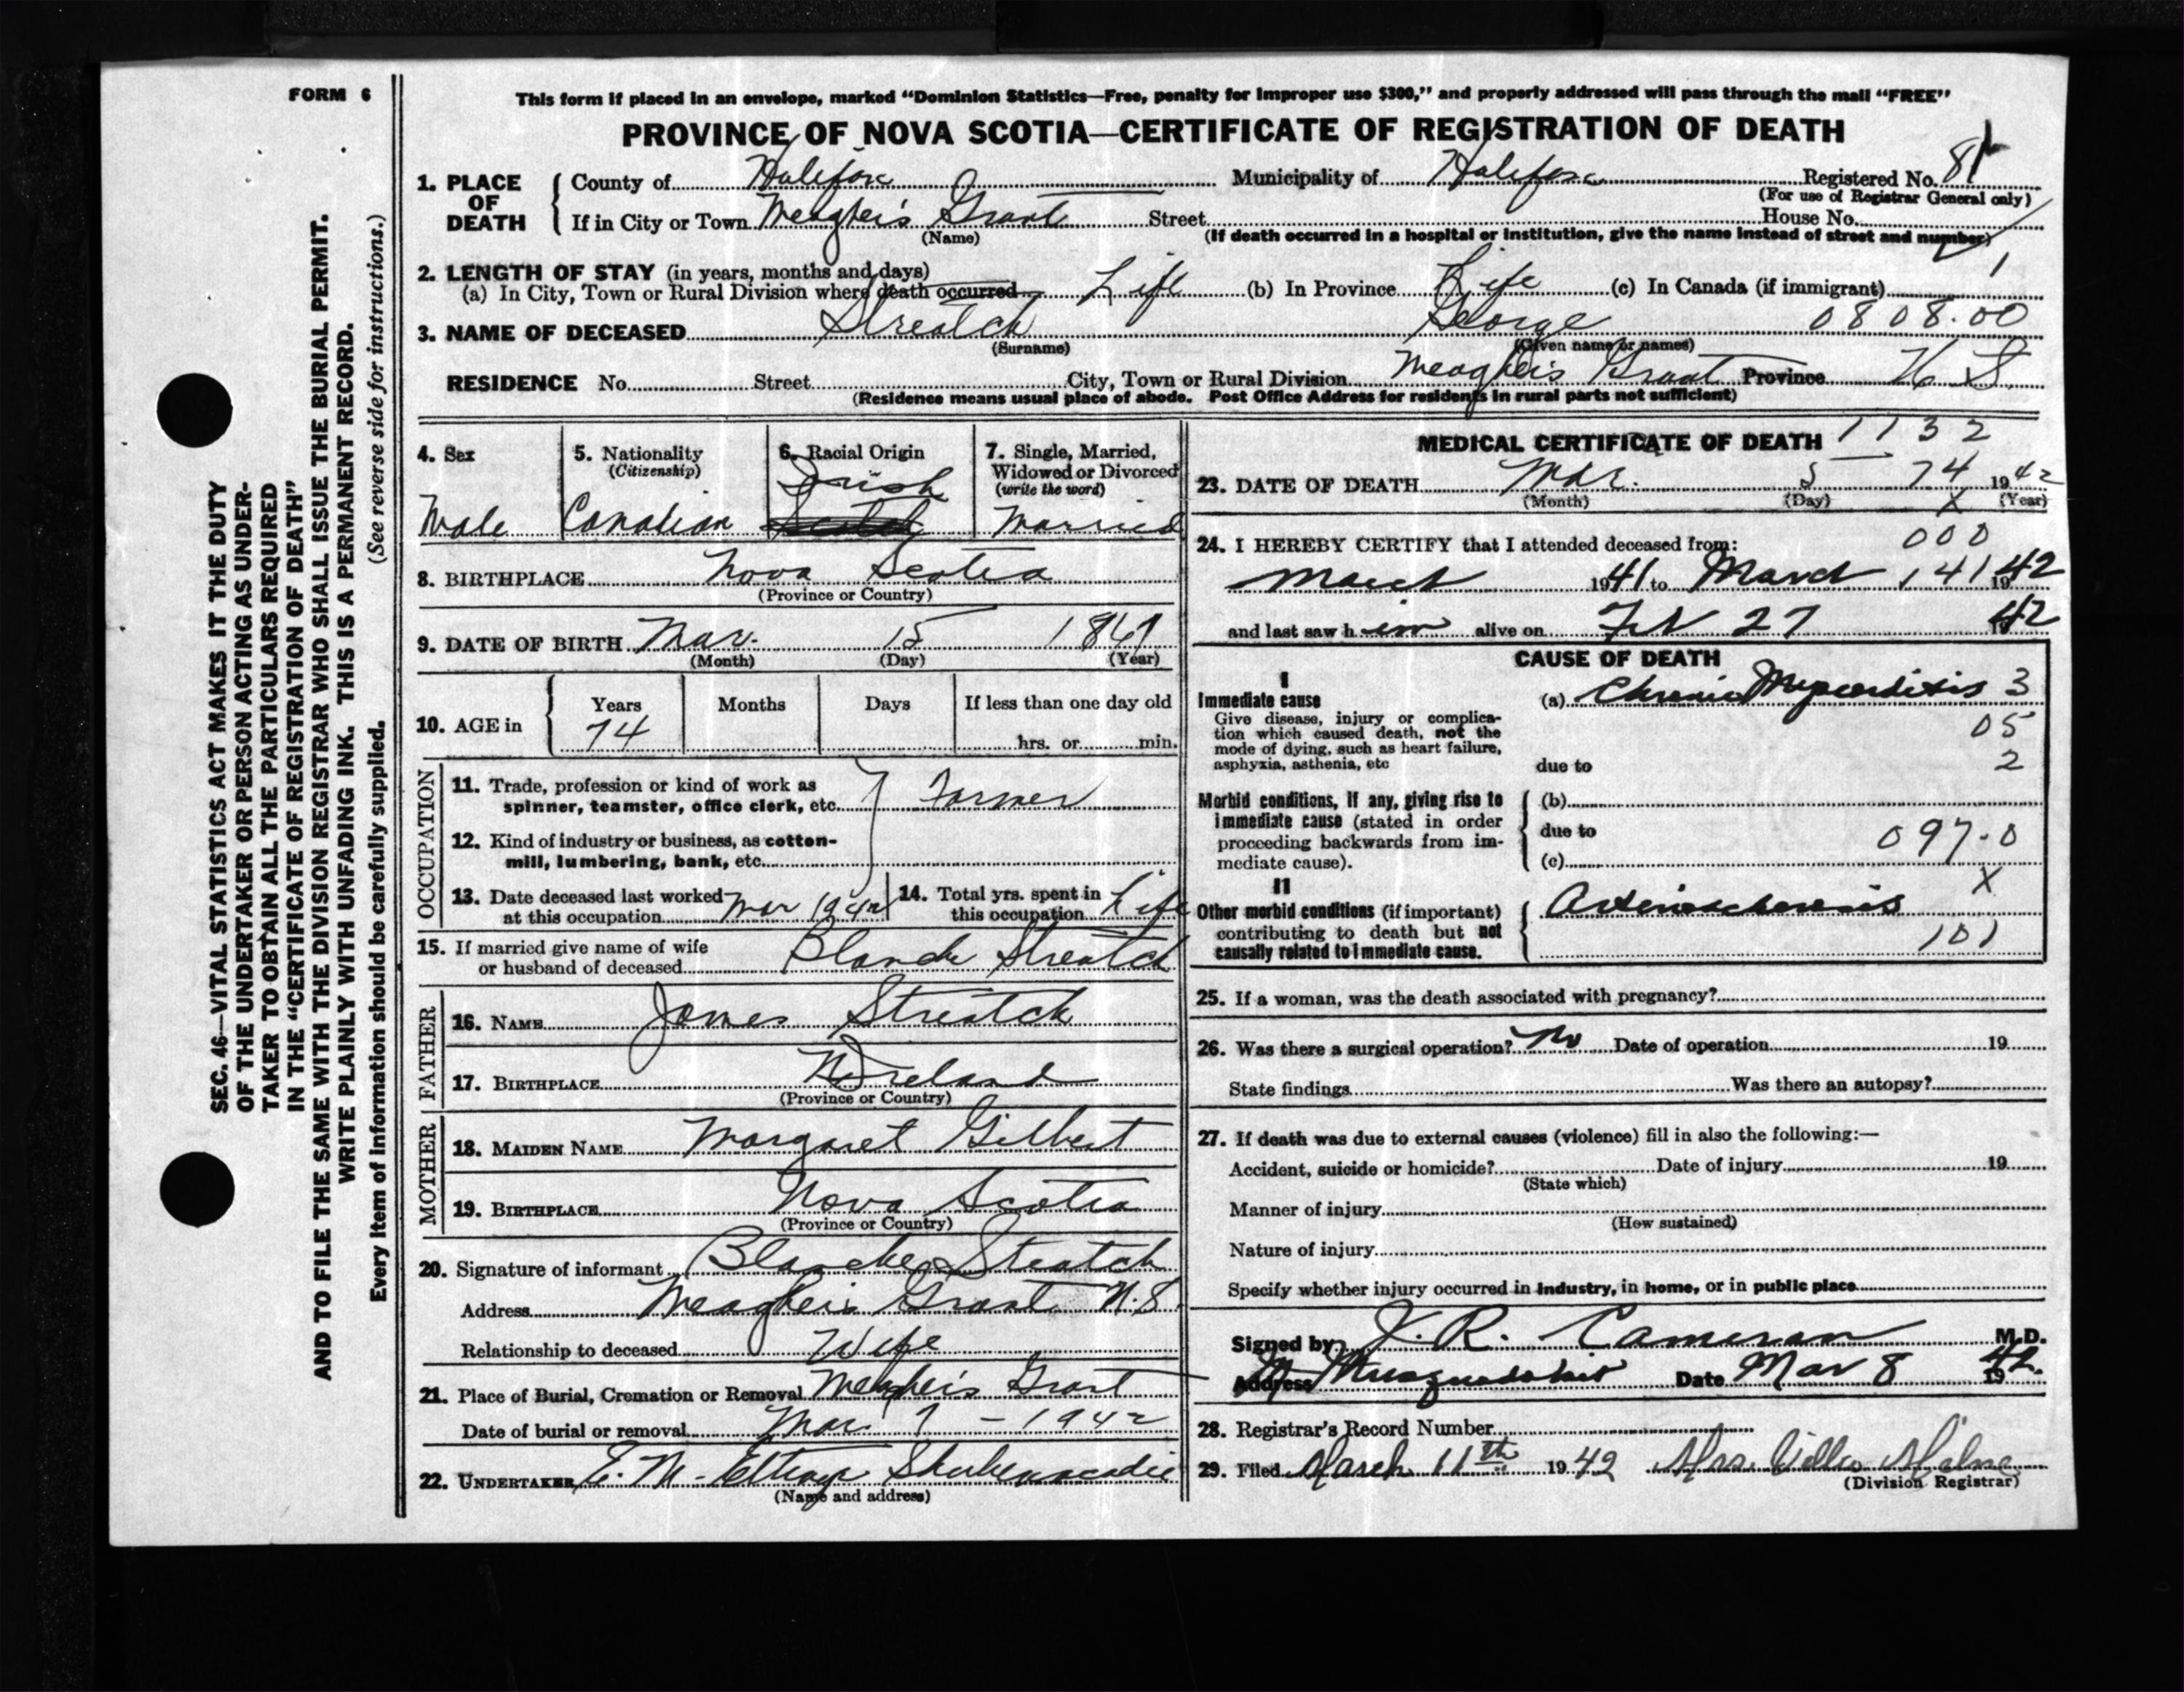 FORM 6
This form if placed in an envelope, marked "Dominion Statistics—Free, penalty for improper use $300," and properly addressed will pass through the mail "FREE"
PROVINCE OF NOVA SCOTIA—CERTIFICATE OF REGISTRATION OF DEATH
1. PLACE OF DEATH County of Halifax Municipality of Halifax Registered No. 81
(For use of Registrar General only)
If in City or Town Meagher's Grant Street House No.
(Name) (If death occurred in a hospital or institution, give the name instead of street and number)
2. LENGTH OF STAY (in years, months and days)
(a) In City, Town or Rural Division where death occurred Life (b) In Province Life (c) In Canada (if immigrant)
3. NAME OF DECEASED Streatch George 0808.00
(Surname) (Given name or names)
RESIDENCE No. Street City, Town or Rural Division Meagher's Grant Province N S
(Residence means usual place of abode. Post Office Address for residents in rural parts not sufficient)
4. Sex
Male
5. Nationality
(Citizenship)
Canadian
6. Racial Origin
Irish
7. Single, Married,
Widowed or Divorced
(write the word)
Married
8. BIRTHPLACE Nova Scotia
(Province or Country)
9. DATE OF BIRTH Mar. 15 1867
(Month) (Day) (Year)
10. AGE in Years Months Days If less than one day old
74 hrs. or min.
OCCUPATION
11. Trade, profession or kind of work as
spinner, teamster, office clerk, etc. Farmer
12. Kind of industry or business, as cotton-
mill, lumbering, bank, etc.
13. Date deceased last worked
at this occupation Mar 1942
14. Total yrs. spent in
this occupation Life
15. If married give name of wife
or husband of deceased Blanche Streatch
FATHER
16. NAME James Streatch
17. BIRTHPLACE N Ireland
(Province or Country)
MOTHER
18. MAIDEN NAME Margaret Gilbert
19. BIRTHPLACE Nova Scotia
(Province or Country)
20. Signature of informant Blanche Streatch
Address Meagher's Grant N.S.
Relationship to deceased Wife
21. Place of Burial, Cremation or Removal Meagher's Grant
Date of burial or removal Mar 7 - 1942
22. UNDERTAKER E. M. Shubenacadie
(Name and address)
MEDICAL CERTIFICATE OF DEATH 1132
23. DATE OF DEATH Mar. 5 74 1942
(Month) (Day) X (Year)
24. I HEREBY CERTIFY that I attended deceased from: 000
March 1941 to March 141 1942
and last saw him alive on Feb 27 1942
CAUSE OF DEATH
I
Immediate cause (a) Chronic Myocarditis 3
Give disease, injury or complica-
tion which caused death, not the 05
mode of dying, such as heart failure,
asphyxia, asthenia, etc due to 2
Morbid conditions, if any, giving rise to (b)
immediate cause (stated in order
proceeding backwards from im- due to 097-0
mediate cause). (c)
II X
Other morbid conditions (if important) Arteriosclerosis
contributing to death but not
causally related to immediate cause. 101
25. If a woman, was the death associated with pregnancy?
26. Was there a surgical operation? No Date of operation 19
State findings Was there an autopsy?
27. If death was due to external causes (violence) fill in also the following:—
Accident, suicide or homicide? Date of injury 19
(State which)
Manner of injury
(How sustained)
Nature of injury
Specify whether injury occurred in industry, in home, or in public place
Signed by J. R. Cameron M.D.
Address M Musquodoboit Date Mar 8 1942
28. Registrar's Record Number
29. Filed March 11th 1942 Mrs.
(Division Registrar)
SEC. 46—VITAL STATISTICS ACT MAKES IT THE DUTY
OF THE UNDERTAKER OR PERSON ACTING AS UNDER-
TAKER TO OBTAIN ALL THE PARTICULARS REQUIRED
IN THE "CERTIFICATE OF REGISTRATION OF DEATH"
AND TO FILE THE SAME WITH THE DIVISION REGISTRAR WHO SHALL ISSUE THE BURIAL PERMIT.
WRITE PLAINLY WITH UNFADING INK. THIS IS A PERMANENT RECORD.
Every item of information should be carefully supplied. (See reverse side for instructions.)